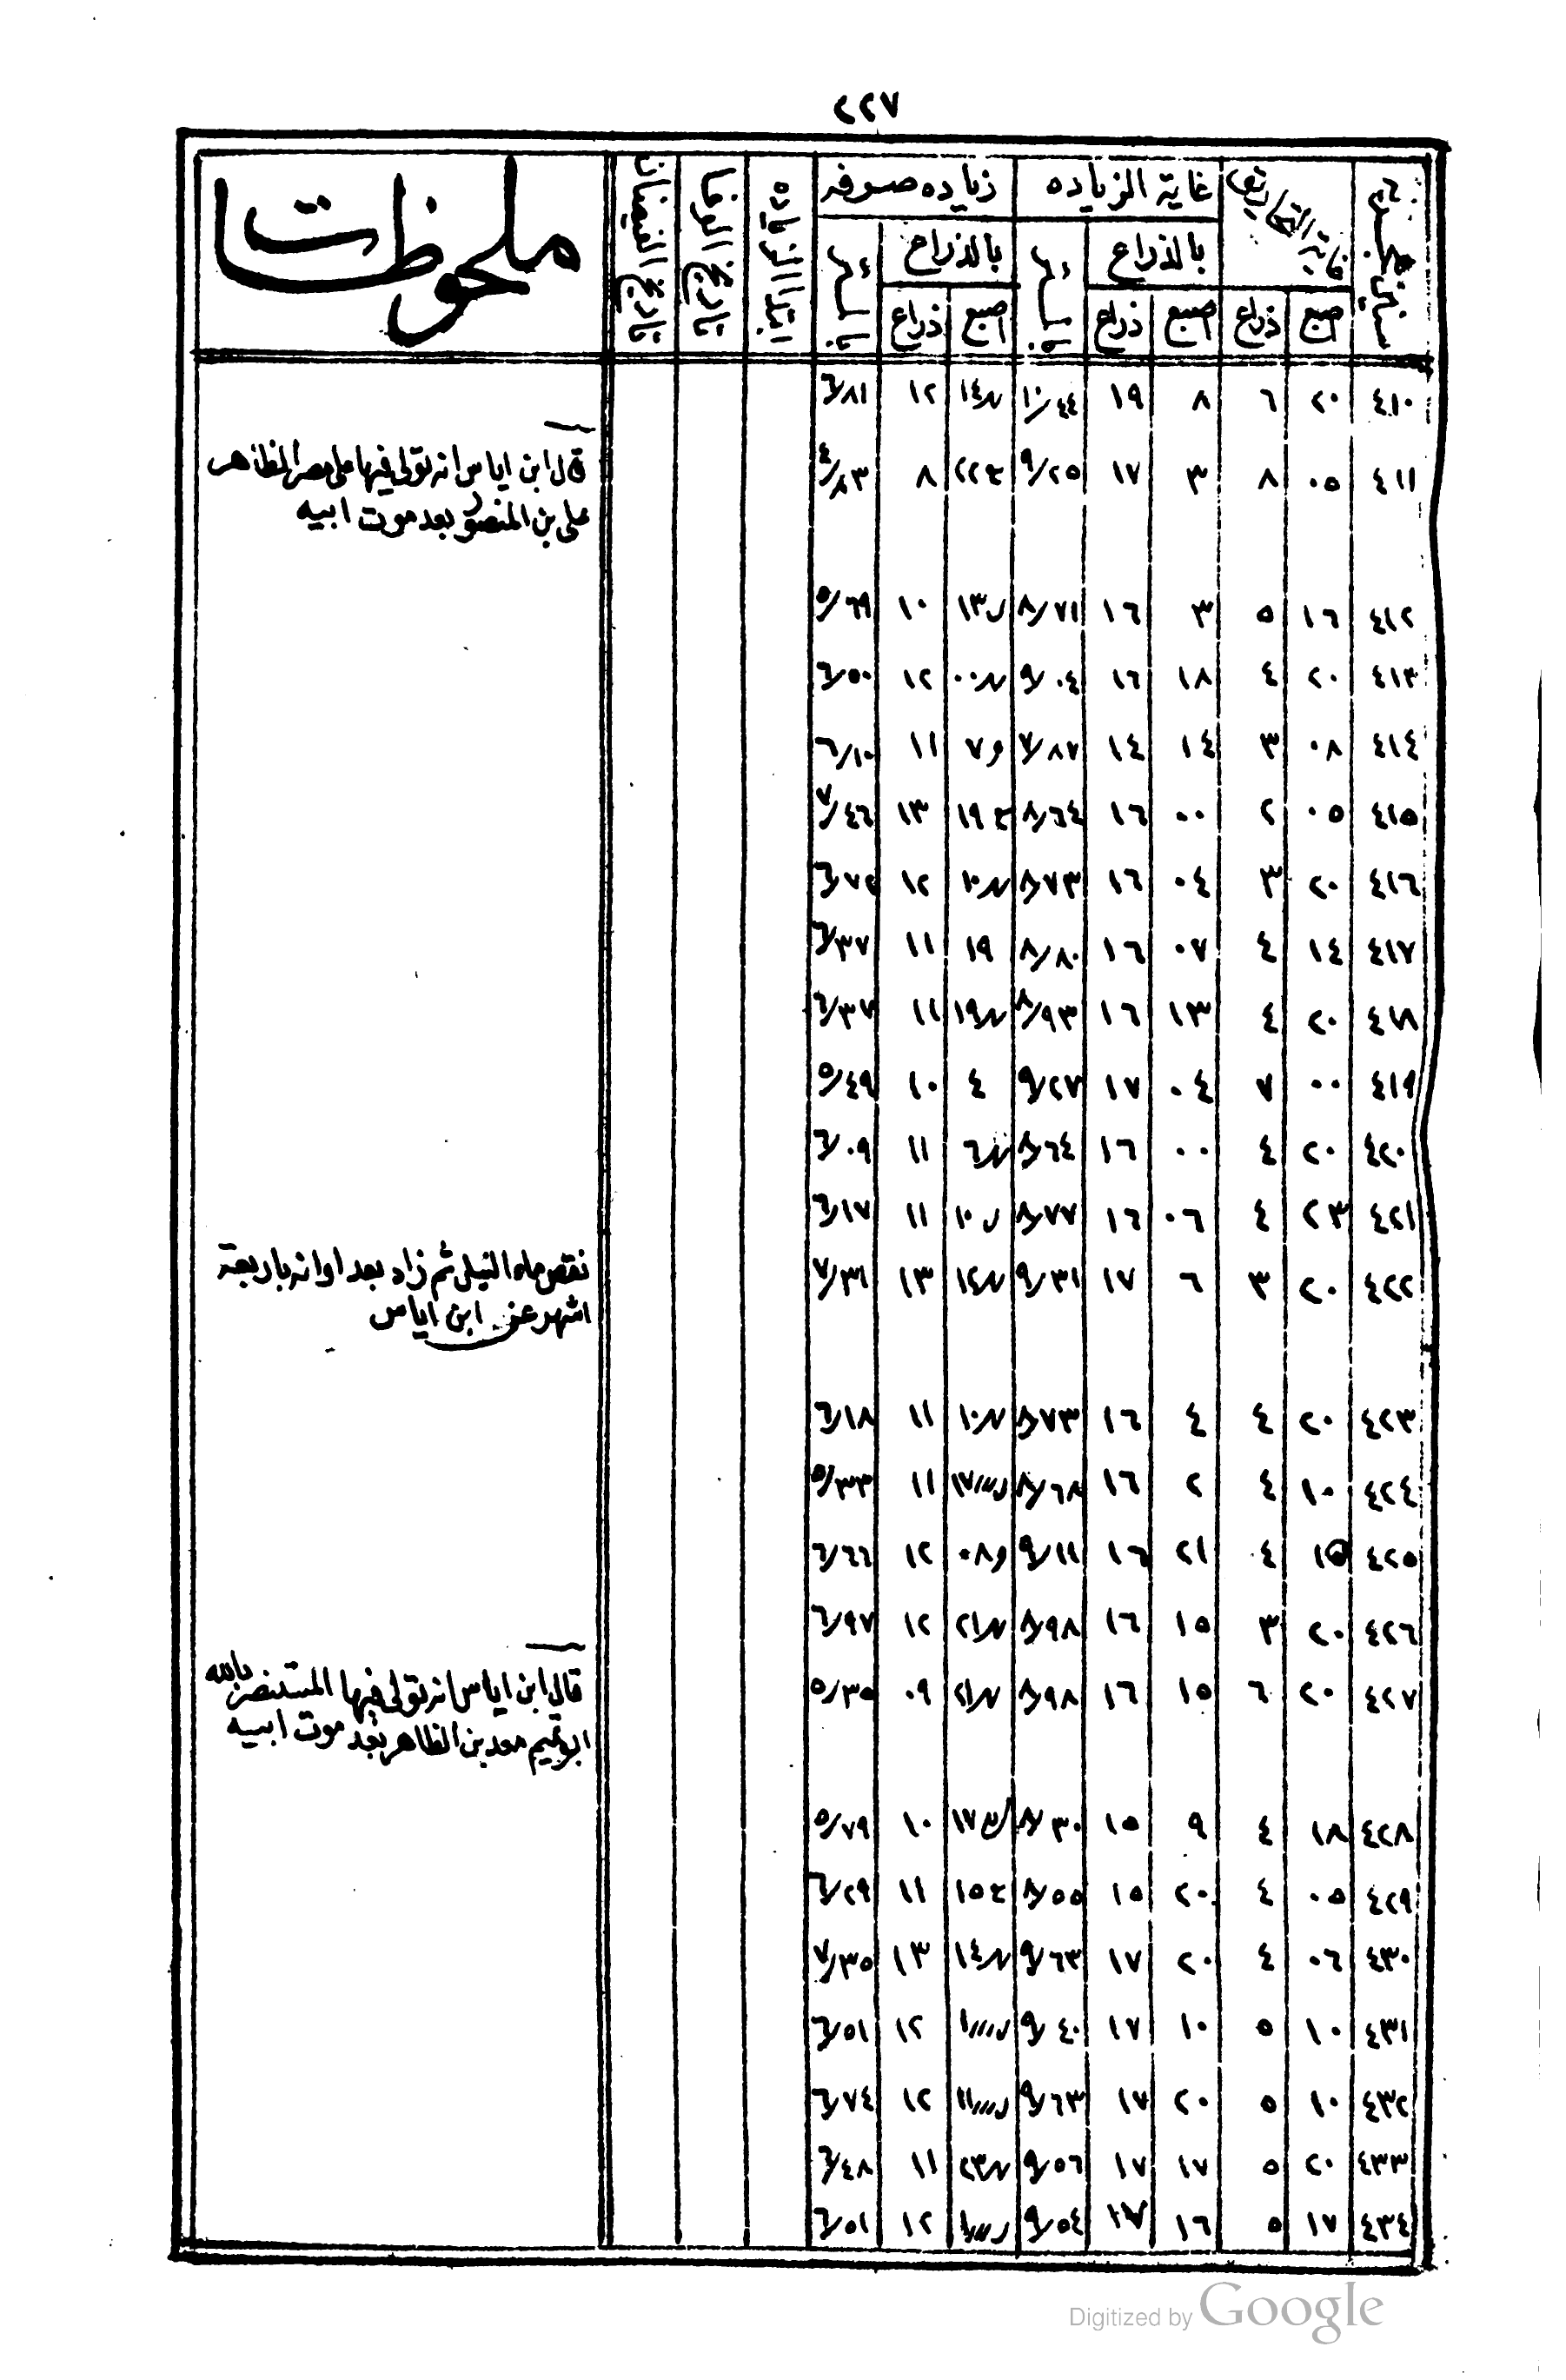 ٢٢٧
سنين هجريه | غاية التحاريق | غاية الزياده | زياده صرفه | ابتدا الزياده | تاريخ الوفا | تاريخ الفيضان | ملحوظات
بالذراع | بالذراع
اصبع | ذراع | اصبع | ذراع | اصبع | ذراع
٤١٠ | ٢٠ | ٦ | ٨ | ١٩ | ١٠/٤٤ | ١٤ | ١٢ | ٦/٨١
٤١١ | ٠٥ | ٨ | ٣ | ١٧ | ٩/٢٥ | ٢٢ | ٨ | ٤/٨٣ | قال ابن اياس انه تولى فيها على مصر الظاهر
على بن المنصور بعد موت ابيه
٤١٢ | ١٦ | ٥ | ٣ | ١٦ | ٨/٧١ | ١٣ | ١٠ | ٥/٦٩
٤١٣ | ٢٠ | ٤ | ١٨ | ١٦ | ٩/٠٤ | ٠٠ | ١٢ | ٦/٥٠
٤١٤ | ٠٨ | ٣ | ١٤ | ١٤ | ٧/٨٧ | ٧ | ١١ | ٦/١٠
٤١٥ | ٠٥ | ٢ | ٠٠ | ١٦ | ٨/٦٤ | ١٩ | ١٣ | ٧/٤٦
٤١٦ | ٢٠ | ٣ | ٠٤ | ١٦ | ٨/٧٣ | ١٠ | ١٢ | ٦/٧٢
٤١٧ | ١٤ | ٤ | ٠٧ | ١٦ | ٨/٨٠ | ١٩ | ١١ | ٦/٣٧
٤١٨ | ٢٠ | ٤ | ١٣ | ١٦ | ٨/٩٣ | ١٩ | ١١ | ٦/٣٧
٤١٩ | ٠٠ | ٧ | ٠٤ | ١٧ | ٩/٢٧ | ٤ | ١٠ | ٥/٤٩
٤٢٠ | ٢٠ | ٤ | ٠٠ | ١٦ | ٨/٦٤ | ٦ | ١١ | ٦/٠٩
٤٢١ | ٢٣ | ٤ | ٠٦ | ١٦ | ٨/٧٧ | ١٠ | ١١ | ٦/١٧
٤٢٢ | ٢٠ | ٣ | ٦ | ١٧ | ٩/٣١ | ١٢ | ١٣ | ٧/٣١ | نقص ماء النيل ثم زاد بعد اوانه باربعة
اشهر عن ابن اياس
٤٢٣ | ٢٠ | ٤ | ٤ | ١٦ | ٨/٧٣ | ١٠ | ١١ | ٦/١٨
٤٢٤ | ١٠ | ٤ | ٢ | ١٦ | ٨/٦٨ | ١٧ | ١١ | ٥/٣٣
٤٢٥ | ١٥ | ٤ | ٢١ | ١٦ | ٩/١١ | ٠٨ | ١٢ | ٦/٦٦
٤٢٦ | ٢٠ | ٣ | ١٥ | ١٦ | ٨/٩٨ | ٢١ | ١٢ | ٦/٩٧
٤٢٧ | ٢٠ | ٦ | ١٥ | ١٦ | ٨/٩٨ | ٢١ | ٠٩ | ٥/٣٥ | قال ابن اياس انه تولى فيها المستنصر بالله
ابو تميم معد بن الظاهر بعد موت ابيه
٤٢٨ | ١٨ | ٤ | ٩ | ١٥ | ٨/٣٠ | ١٧ | ١٠ | ٥/٧٩
٤٢٩ | ٠٥ | ٤ | ٢٠ | ١٥ | ٨/٥٥ | ١٥ | ١١ | ٦/٢٩
٤٣٠ | ٠٦ | ٤ | ٢٠ | ١٧ | ٩/٦٣ | ١٤ | ١٣ | ٧/٣٥
٤٣١ | ١٠ | ٥ | ١٠ | ١٧ | ٩/٤٠ | ١٢ | ٦/٥١
٤٣٢ | ١٠ | ٥ | ٢٠ | ١٧ | ٩/٦٣ | ١١ | ١٢ | ٦/٧٤
٤٣٣ | ٢٠ | ٥ | ١٧ | ١٧ | ٩/٥٦ | ٢٣ | ١١ | ٦/٤٨
٤٣٤ | ١٧ | ٥ | ١٦ | ١٧ | ٩/٥٤ | ١٢ | ٦/٥١
Digitized by Google